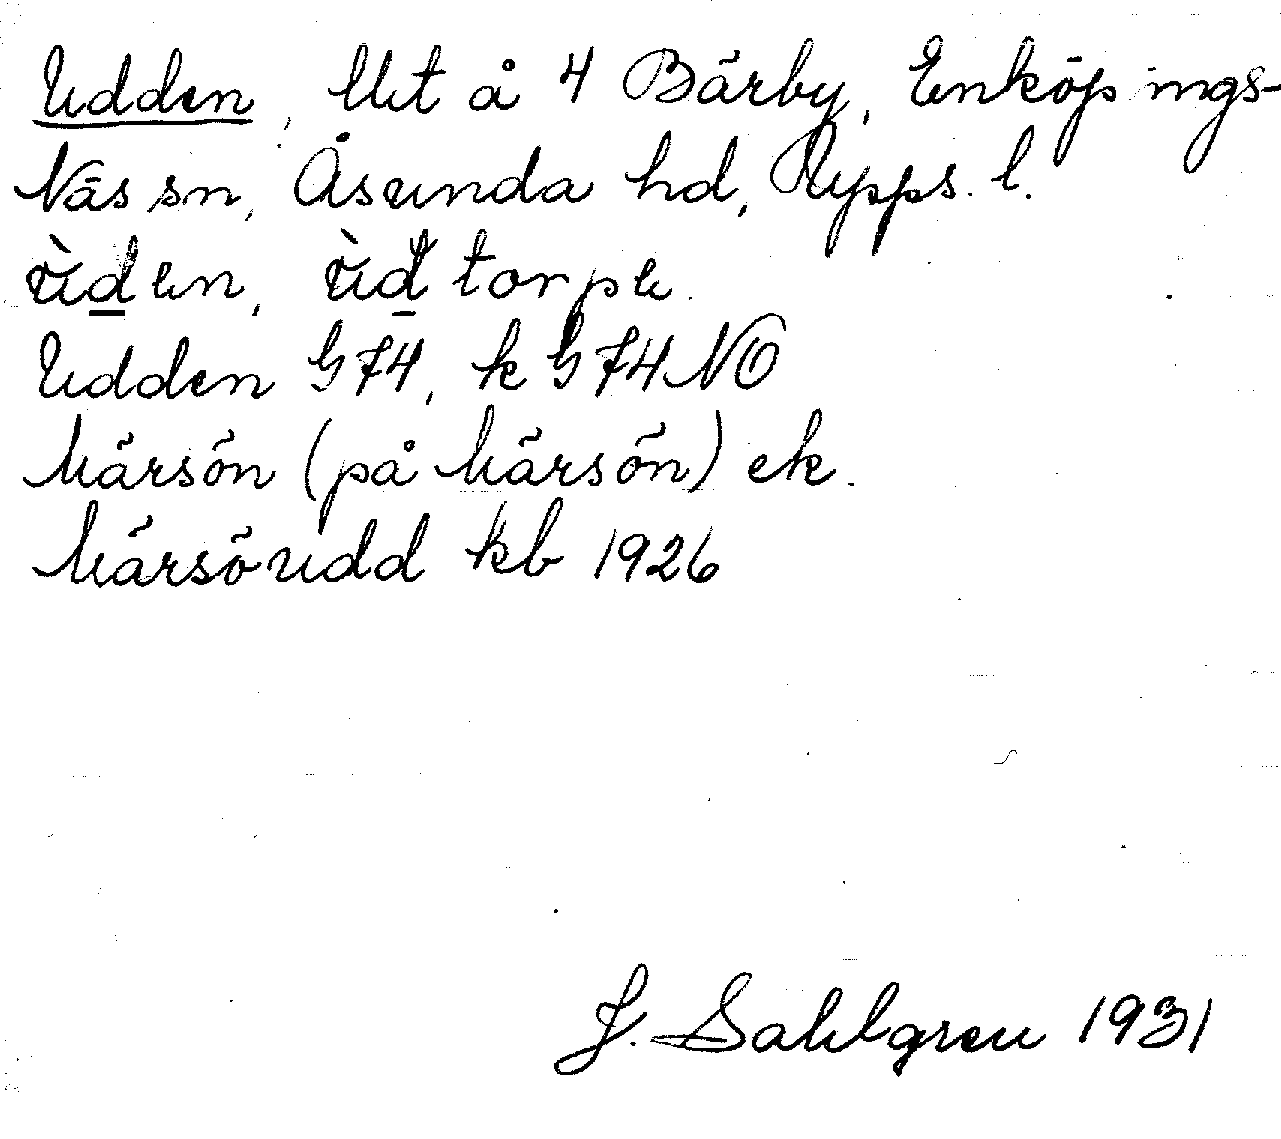 Udden, Utt å 4 Bärby, Enköpings-
Näs sn, Åsunda hd, Upps. l.
ùden, ùd torpe
Udden G74, k G74 NO
Kärsön (på Kärsön) ek.
Kärsöudd kb 1926
J. Sahlgren 1931